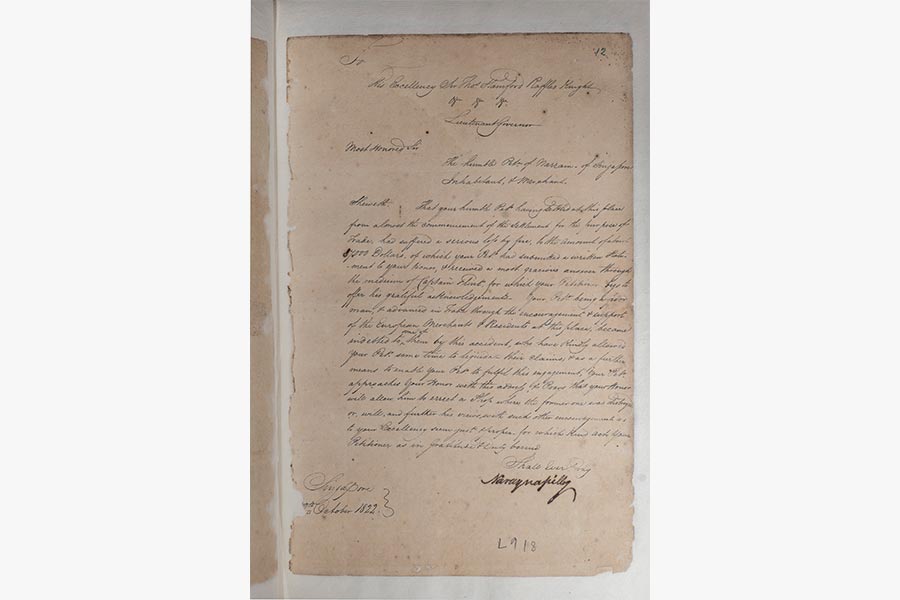 12
To
His Excellency Sir Thos Stamford Raffles Knight
&c &c &c
Lieutenant Governor
Most Honored Sir
The Humble Petn of Narrain of Singapore
Inhabitant, & Merchant.
Sheweth That your humble Petr having settled at this place
from almost the commencement of the Settlement for the purpose of
Trade, had suffered a serious loss by fire, to the amount of about
Dollars, of which your Petr had submitted a written State-
-ment to your Honor, & received a most gracious answer through
the medium of Captain Flint for which your Petitioner begs to
offer his grateful acknowledgements. Your Petr being a poor
man, & advanced in Trade through the encouragement & support
of the European Merchants & Residents at this place, became
indebted to some of them by this accident, who have kindly allowed
your Petr some time to liquidate their claims, & as a further
means to enable your Petr to fulfil this engagement, Your Petr
approaches Your Honor with this and that your Honor
will allow him to errect a Shop where the former one was destroy
or, will, and further his views with such other encouragement as
to your Excellency seem just & proper for which kind act your
Petitioner as in gratitude & duty bound
Shall Ever Pray
Naraynapilly
Singapore
October 1822
L918